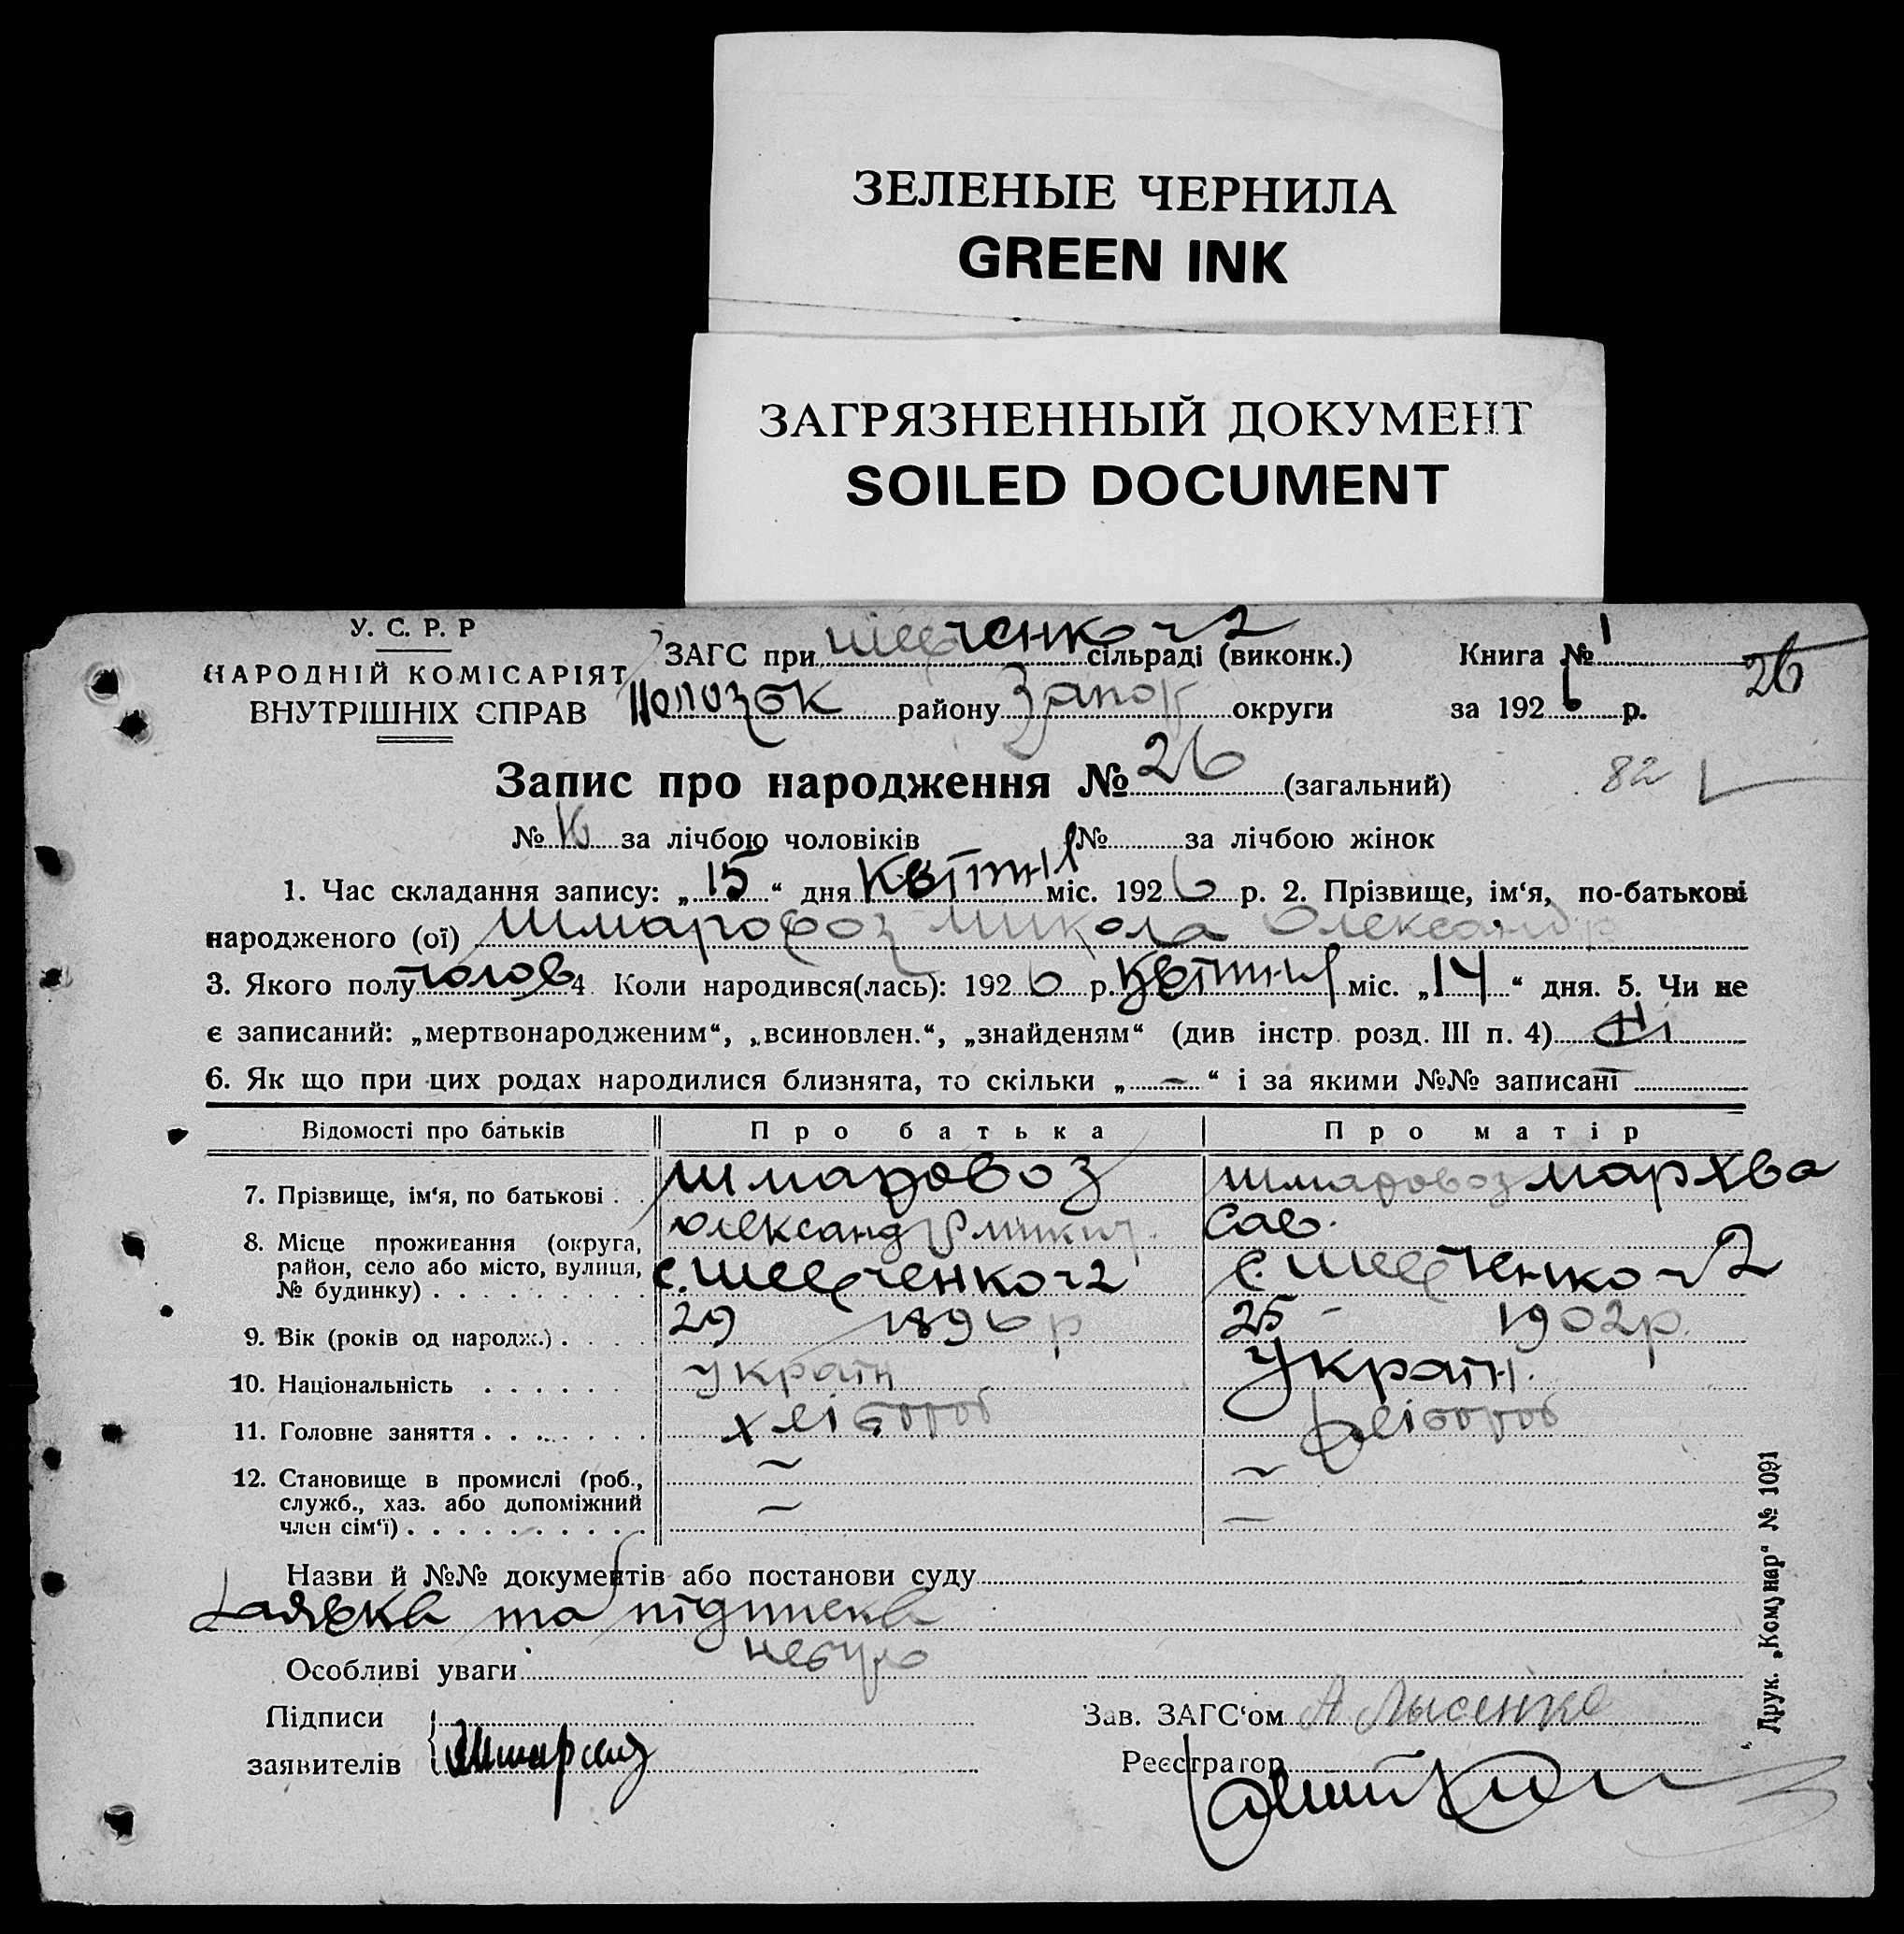 ЗЕЛЕНЫЕ ЧЕРНИЛА
GREEN INK
ЗАГРЯЗНЕННЫЙ ДОКУМЕНТ
SOILED DOCUMENT
У. С. Р. Р
НАРОДНІЙ КОМІСАРІЯТ
ВНУТРІШНІХ СПРАВ
ЗАГС при Шевченко ч 2 сільраді (виконк.) Книга № 1
26
Пологок району Запор округи за 1926 р.
Запис про народження № 26 (загальний)
82
№ 16 за лічбою чоловіків № за лічбою жінок
1. Час складання запису: „15“ дня Квітня міс. 1926 р. 2. Прізвище, ім‘я, по-батькові
народженого (ої) Шмаровоз Микола Олександр
3. Якого полу чолов 4 Коли народився(лась): 1926 р. Квітня міс. „14“ дня. 5. Чи не
є записаний: „мертвонародженим“, „всиновлен.“, „знайденям“ (див інстр. розд. III п. 4) ні
6. Як що при цих родах народилися близнята, то скільки „—“ і за якими №№ записані
Відомості про батьків Про батька Про матір
7. Прізвище, ім‘я, по батькові . . Шмаровоз Шмаровоз Мархва
Олександр Сав.
8. Місце проживання (округа, район, село або місто, вулиця, № будинку) . . . . . . . . . с. Шевченко ч 2 с. Шевченко ч 2
9. Вік (років од народж.) . . . . 29 1896 р 25 – 1902 р.
10. Національність . . . . . . Україн Україн.
11. Головне заняття . . . . . . . хлібороб хлібороб
12. Становище в промислі (роб., служб., хаз. або допоміжний член сім‘ї) . . . . . . . . . . — —
— —
Назви й №№ документів або постанови суду
Заявка та підписка
Особливі уваги небуло
Підписи
заявителів
Зав. ЗАГС‘ом А Лысенко
Реєстратор
Друк. „Комунар“ № 1091